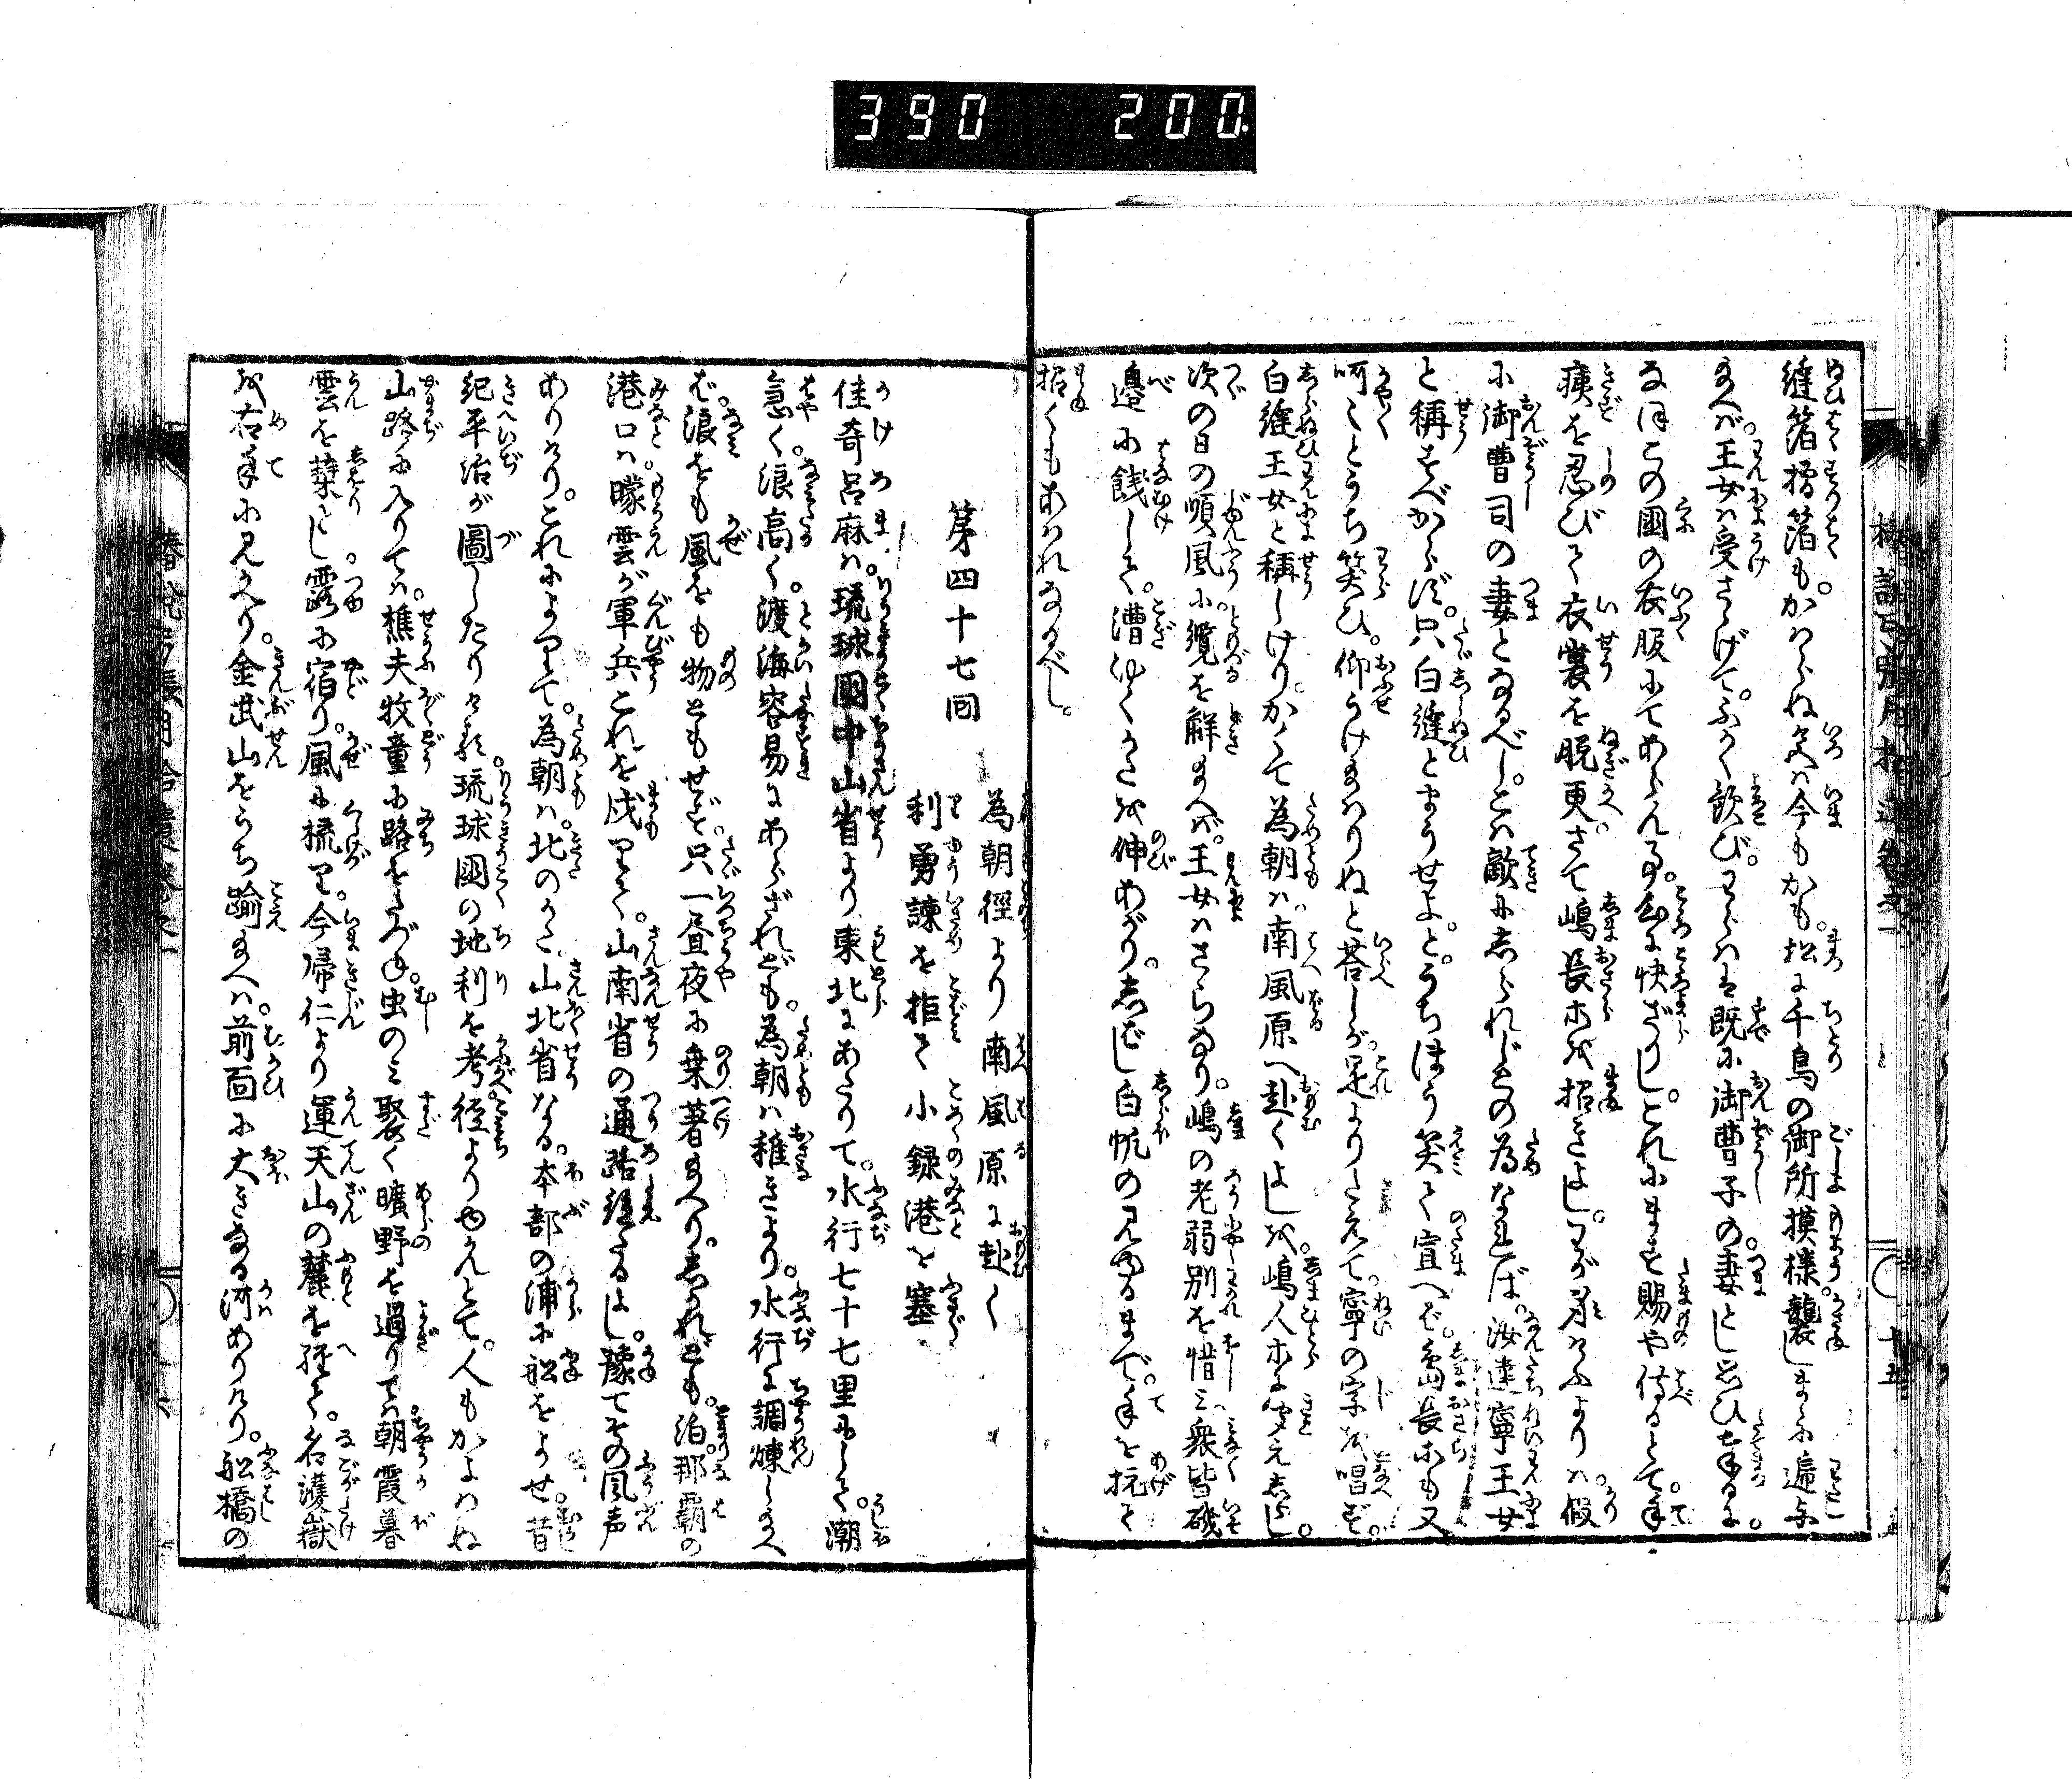 390 200
縫箔摺箔も。かはらぬ色は今もかも。松に千鳥の御所摸様。襲しまゝに遞与
給へば。王女は受さゝげて。ふかく歓び。われは既に御曹子の。妻とし思ひ奉るに。
なほこの國の衣服にてあらん事。快ざりし。これにます賜や侍るとて。手
痍を忍びて衣裳を脱更。さて嶋長等を招きよし。わが身けふよりは。假
に御曹司の妻となるべし。こは敵にしられじとの為なれば。汝達寧王女
と稱すべからず。只白縫とまうせよ。とうちほゝ笑て宣へば。嶋長等も又
呵々とうち笑ひ。仰うけ給はりぬと荅しが。是よりたえて。寧の字を唱ず。
白縫王女と稱しけり。かくて為朝は。南風原へ赴くよしを。嶋人等に聞えしらし。
次の日の順風に。纜を解給へば。王女はさらなり。嶋の老弱別を惜み。衆皆磯
邊に餞して。漕ゆくかたを伸あがり。しばし白帆の見ゆるまで。手を抗て
招くもあはれなるべし。
第四十七回
為朝徑より南風原に赴く
利勇諫を拒て小録港を塞
佳奇呂麻は。琉球國中山省より東北にあたりて。水行七十七里にして。潮
急く。浪高く。渡海容易にあらざれども。為朝は稚きより。水行に調煉し給へ
ば。浪をも風をも物ともせず。只一昼夜に乗著給へり。しかれども。泊。那覇の
港口は。曚雲が軍兵これを戍りて。山南省の通路絶たるよし。豫てその風声
ありけり。これによりて。為朝は。北のかた。山北省なる。本部の浦に舩をよせ。昔
紀平治が圖したりける。琉球國の地利を考。徑よりゆかんとて。人もかよはぬ
山路に入りては。樵夫牧童に路をたづね。虫のみ聚く曠野を過りては。朝霞暮
雲を藉とし。露に宿り。風に梳り。今帰仁より運天山の麓を經て。名護嶽
を右手に見かへり。金武山をうち踰給へば。前面に大きなる河ありけり。舩橋の